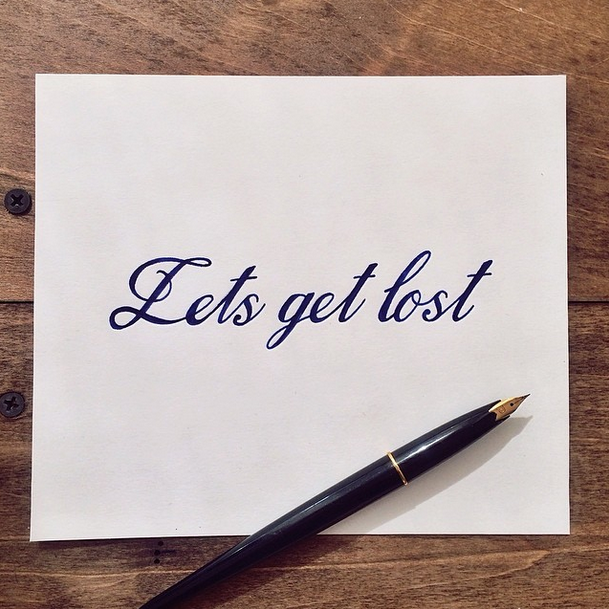 Lets get lost